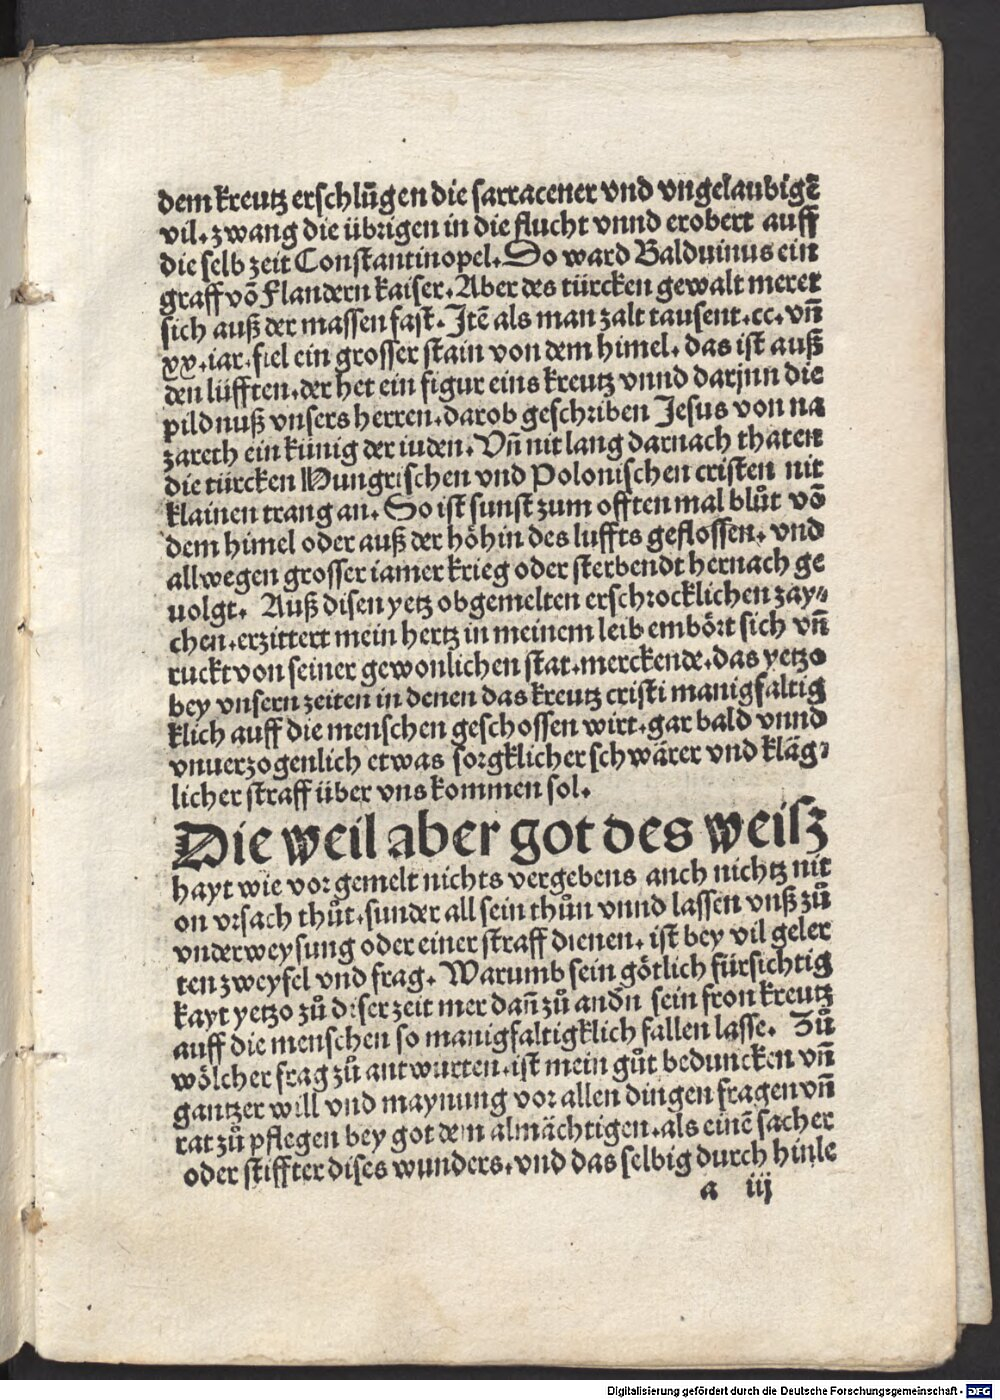 dem kreutz erschlůgen die sarracener vnd vngelaubigē
vil. zwang die übrigen in die flucht vnnd erobert auff
die selb zeit Constantinopel. So ward Balduinus ein
graff vō Flandern kaiser. Aber des türcken gewalt meret
sich auß der massen fast. Itē als man zalt tausent .cc. vn̄
xx. iar. fiel ein grosser stain von dem himel. das ist auß
den lüfften. der het ein figur eins kreutz vnnd darjnn die
pildnuß vnsers herren. darob geschriben Jesus von na
zareth ein künig der iuden. Vn̄ nit lang darnach thaten
die türcken Hungrischen vnd Polonischen cristen nit
klainen trang an. So ist sunst zum offten mal blůt vō
dem himel oder auß der höhin des luffts geflossen. vnd
allwegen grosser iamer krieg oder sterbendt hernach ge
uolgt. Auß disen yetz obgemelten erschrocklichen zay⸗
chen. erzittert mein hertz in meinem leib embört sich vn̄
ruckt von seiner gewonlichen stat. merckende. das yetzo
bey vnsern zeiten in denen das kreutz cristi manigfaltig
klich auff die menschen geschossen wirt. gar bald vnnd
vnuerzogenlich etwas sorgklicher schwärer vnd kläg⸗
licher straff über vns kommen sol.
Die weil aber got des weisz
hayt wie vor gemelt nichts vergebens anch nichtz nit
on vrsach thůt. sunder all sein thůn vnnd lassen vnß zů
vnderweysung oder einer straff dienen. ist bey vil geler
ten zweyfel vnd frag. Warumb sein götlich fürsichtig
kayt yetzo zů diser zeit mer dan̄ zů andn̄ sein fron kreutz
auff die menschen so manigfaltigklich fallen lasse. Zů
wölcher frag zů antwurten. ist mein gůt beduncken vn̄
gantzer will vnd maynung vor allen dingen fragen vn̄
rat zů pflegen bey got dem almächtigen. als einē sacher
oder stiffter dises wunders. vnd das selbig durch hinle
a iij
Digitalisierung gefördert durch die Deutsche Forschungsgemeinschaft - DFG